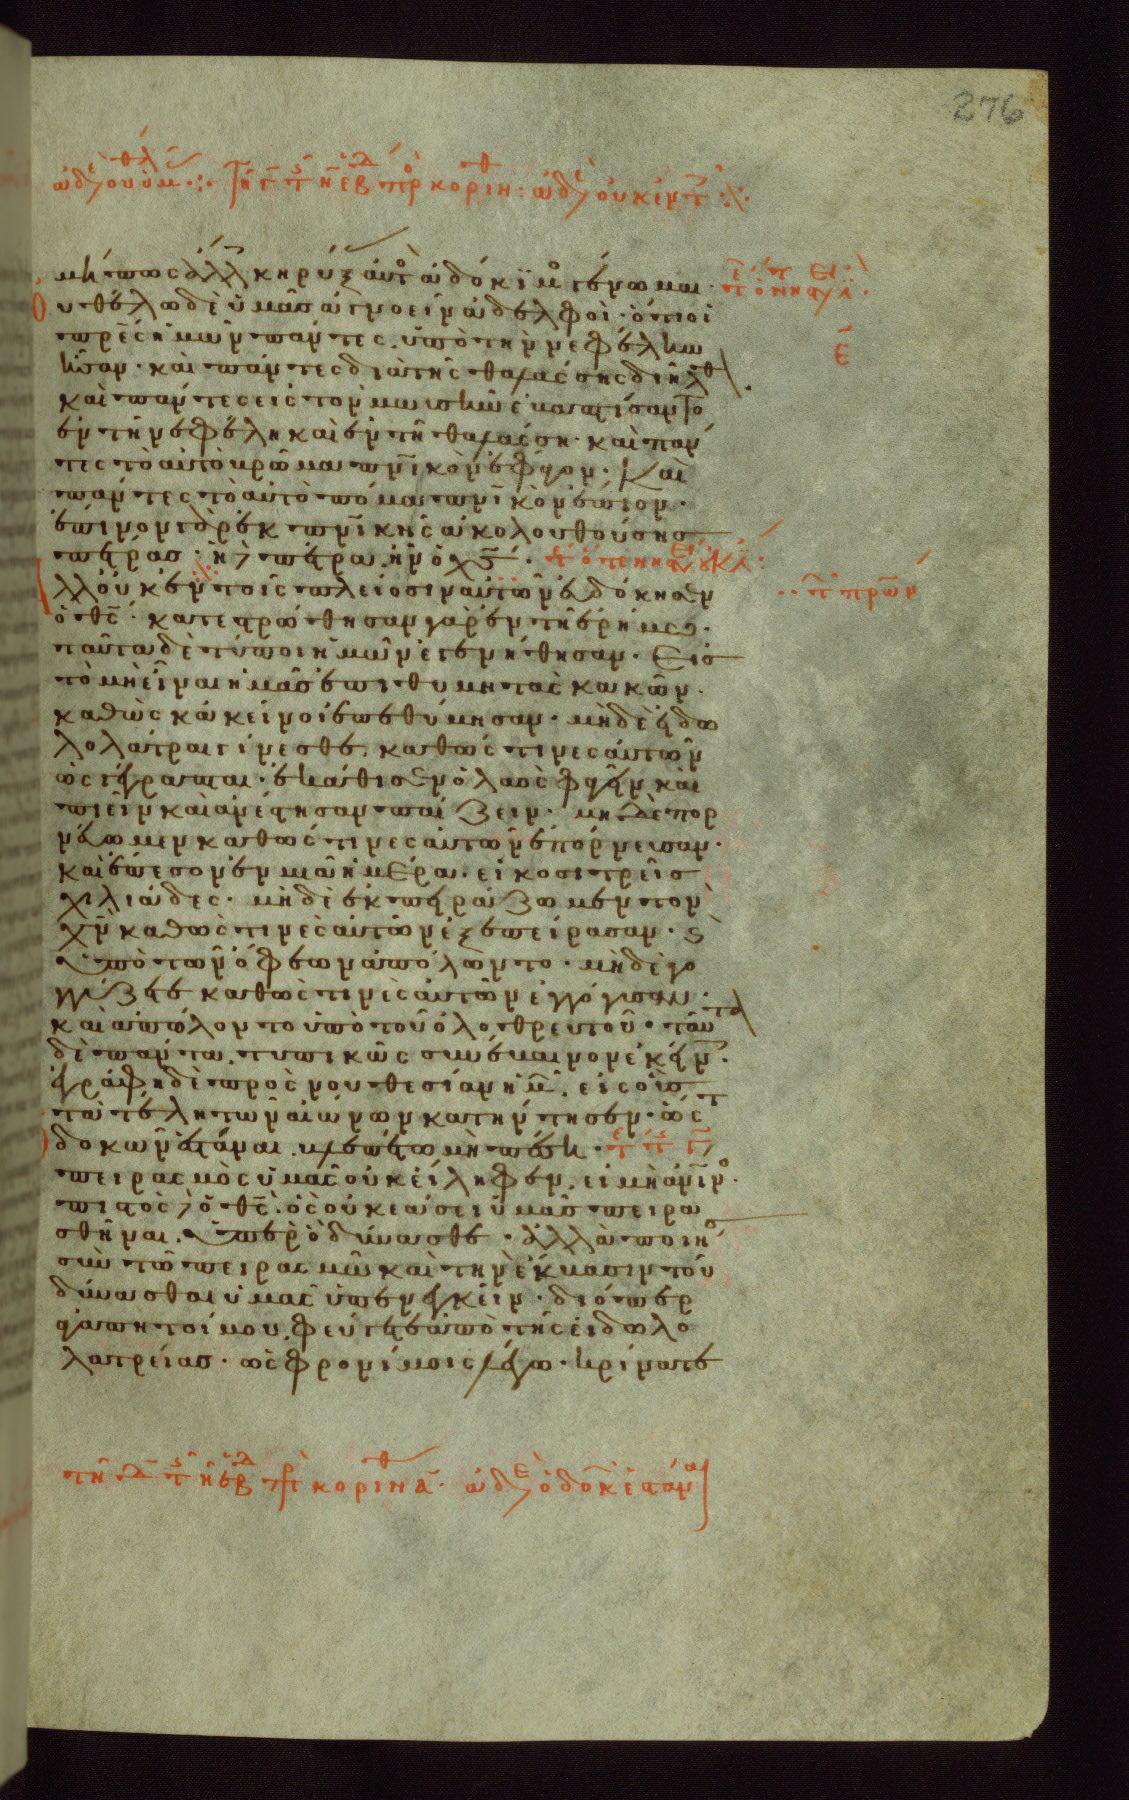 276
μήπως ἄλλοις κηρύξας αὐτὸς ἀδόκιμος γένωμαι·
Οὐ θέλω δὲ ὑμᾶς ἀγνοεῖν ἀδελφοὶ· ὅτι οἱ
πρές ἡμῶν πάντες ὑπὸ τὴν νεφέλην
ἦσαν· καὶ πάντες διὰ τῆς θαλάσσης διῆλθ
καὶ πάντες εἰς τὸν μωυσῆν ἐβαπτίσαντο
ἐν τῆ νεφέλη καὶ ἐν τῆ θαλάσση· καὶ πάν
τες τὸ αὐτὸ βρῶμα πνικὸν ἔφαγον· Καὶ
πάντες τὸ αὐτὸ πόμα πνικὸν ἔπιον·
ἔπινον γὰρ ἐκ πνικῆς ἀκολουθούσης
πέτρας· ἡ δὲ πέτρα ἦν ὁ χς·
ἀλλ οὐκ ἐν τοῖς πλείοσιν αὐτῶν εὐδόκησεν
ὁ θς· κατεστρώθησαν γὰρ ἐν τῆ ἐρήμω·
ταῦτα δὲ τύποι ἡμῶν ἐγενήθησαν· Εἰς
τὸ μὴ εἶναι ἡμᾶς ἐπιθυμητὰς κακῶν·
καθὼς κἀκεῖνοι ἐπεθύμησαν· μηδὲ εἰδω
λολάτραι γίνεσθε καθώς τινες αὐτῶν
ὡς γέγραπται· ἐκάθισεν ὁ λαὸς φαγεῖν καὶ
πιεῖν καὶ ἀνέστησαν παίζειν· μηδὲ πορ
νεύωμεν καθώς τινες αὐτῶν ἐπόρνευσαν·
καὶ ἔπεσον ἐν μιᾶ ἡμέρα εἰκοσιτρεῖς
χιλιάδες· μηδὲ ἐκπειράζωμεν τὸν
χν καθώς τινες αὐτῶν ἐξεπείρασαν· καὶ
ὑπὸ τῶν ὄφεων ἀπόλωντο· μηδὲ γο
γγύζετε καθώς τινες αὐτῶν ἐγγόγυσαν·
καὶ ἀπώλοντο ὑπὸ τοῦ ὀλοθρευτοῦ· ταῦτα
δὲ πάντα τυπικῶς συνέβαινον ἐκείν·
ἐγράφη δὲ πρὸς νουθεσίαν ἡμ εἰς οὓς
τὰ τέλη τῶν αἰώνων κατήντησεν· ὥστ
ὁ δοκῶν ἑστάναι βλεπέτω μὴ πέση·
πειρασμὸς ὑμᾶς οὐκ εἴληφεν εἰ μὴ ἀνινος·
πιστὸς δὲ ὁ θς ὃς οὐκ ἐάσει ὑμᾶς πειρα
σθῆναι ὑπὲρ ὃ δύνασθε· ἀλλὰ ποιήσ
σὺν τῶ πειρασμῶ καὶ τὴν ἔκβασιν τοῦ
δύνασθαι ὑμᾶς ὑπενεγκεῖν· διόπερ
ἀγαπητοί μου φεύγετε ἀπὸ τῆς εἰδωλο
λατρείας· ὡς φρονίμοις λέγω· κρίνατε